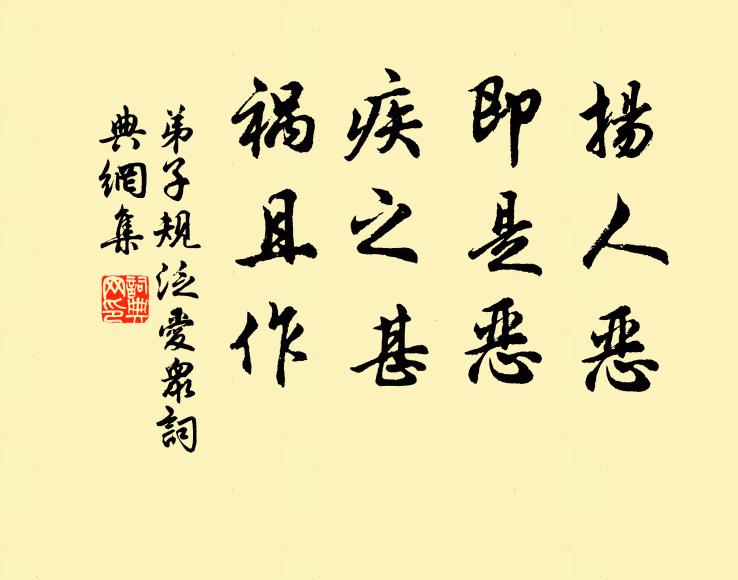 揚人惡
即是惡
疾之甚
禍且作
弟子規泛愛衆詞
典網集
詞典
网印